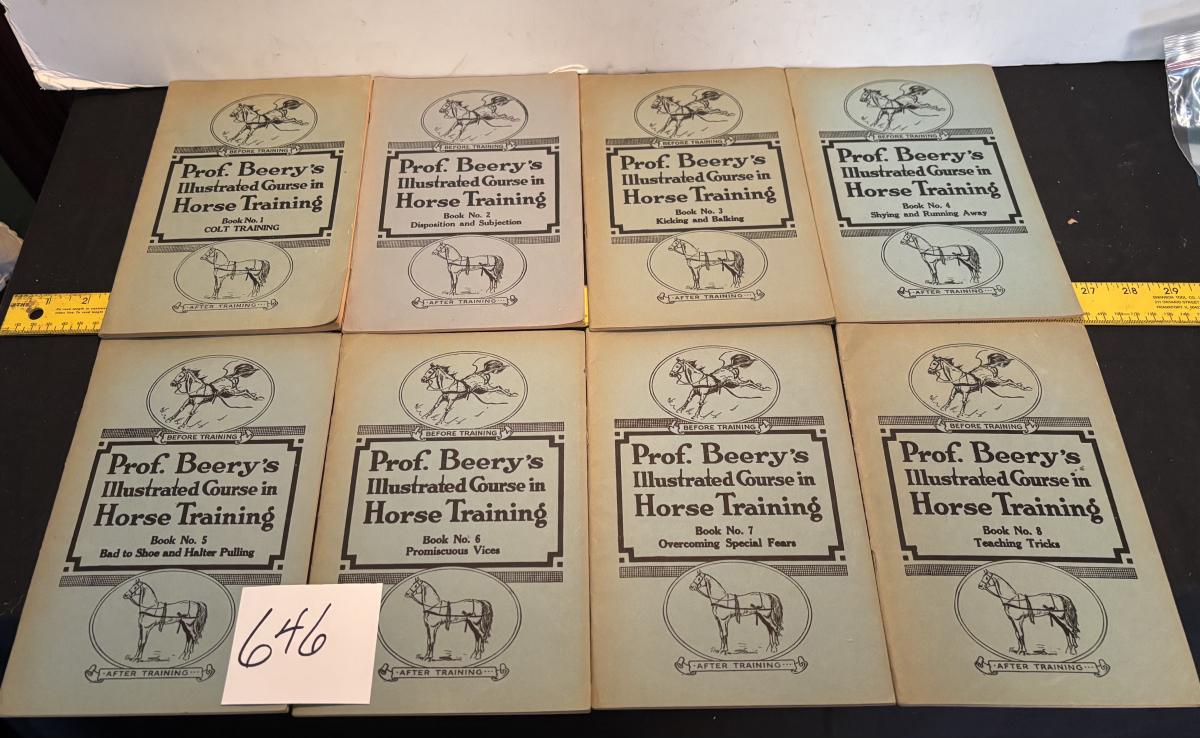 BEFORE TRAINING
Prof. Beery's
Illustrated Course in
Horse Training
Book No. 1
COLT TRAINING
AFTER TRAINING
BEFORE TRAINING
Prof. Beery's
Illustrated Course in
Horse Training
Book No. 2
Disposition and Subjection
AFTER TRAINING
BEFORE TRAINING
Prof. Beery's
Illustrated Course in
Horse Training
Book No. 3
Kicking and Balking
AFTER TRAINING
BEFORE TRAINING
Prof. Beery's
Illustrated Course in
Horse Training
Book No. 4
Shying and Running Away
AFTER TRAINING
1 2
27 28 29
BEFORE TRAINING
Prof. Beery's
Illustrated Course in
Horse Training
Book No. 5
Bad to Shoe and Halter Pulling
AFTER TRAINING
BEFORE TRAINING
Prof. Beery's
Illustrated Course in
Horse Training
Book No. 6
Promiscuous Vices
AFTER TRAINING
BEFORE TRAINING
Prof. Beery's
Illustrated Course in
Horse Training
Book No. 7
Overcoming Special Fears
AFTER TRAINING
BEFORE TRAINING
Prof. Beery's
Illustrated Course in
Horse Training
Book No. 8
Teaching Tricks
AFTER TRAINING
646